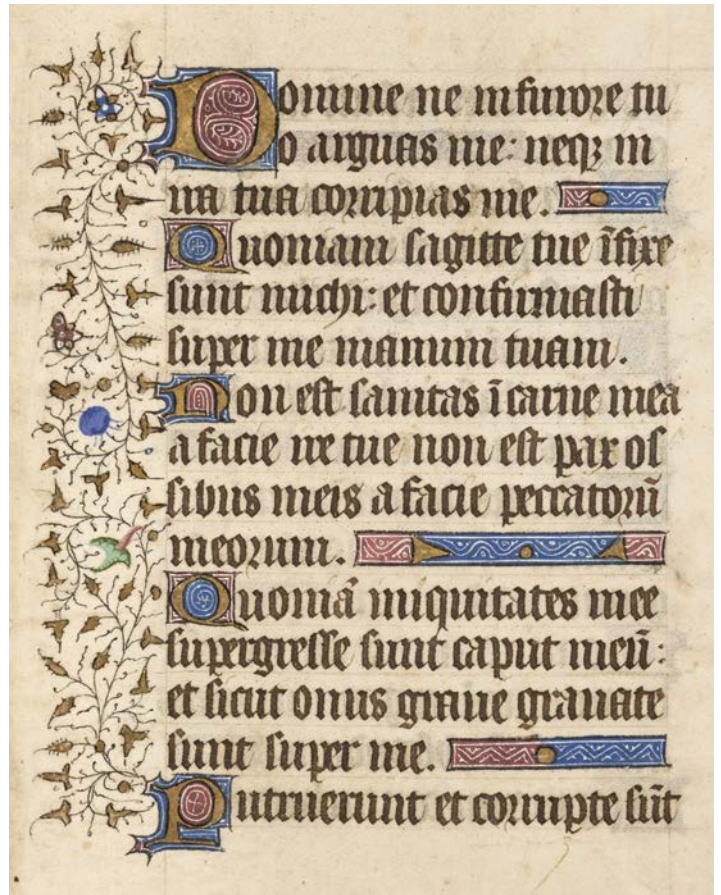 Domine ne in furore tu
o arguas me: neqꝫ in
ira tua corripias me.
Quoniam sagitte tue ī fixe
sunt michi: et confirmasti
super me manum tuam.
Non est sanitas ī carne mea
a facie ire tue non est pax os
sibus meis a facie peccatorū
meorum.
Quoniā iniquitates mee
supergresse sunt caput meū:
et sicut onus graue grauate
sunt super me.
Putruerunt et corrupte sūt